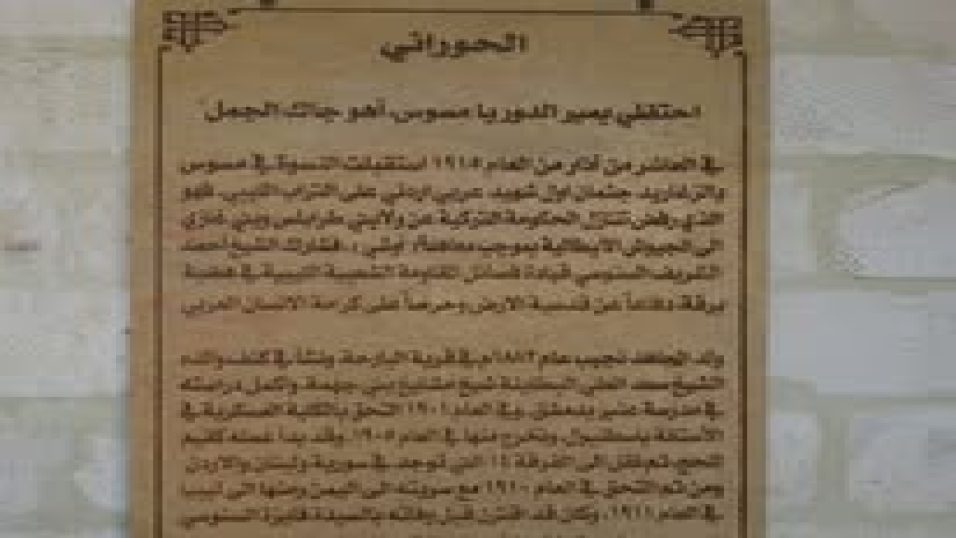 الحوراني
احتفظي بمير الدور يا مسوس، أهو جاك الجمل
في العاشر من آذار من العام ١٩١٥ استقبلت النسوة في مسوس
والزغاريد جثمان اول شهيد عربي اردني على التراب الليبي. فهو
الذي رفض تنازل الحكومة التركية عن ولايتي طرابلس وبني غازي
الى الجيوش الايطالية بموجب معاهدة أوشي، فشارك الشيخ أحمد
الشريف السنوسي قيادة فصائل المقاومة الشعبية الليبية في هضبة
برقة، دفاعاً عن قدسية الارض وحرصاً على كرامة الانسان العربي
ولد المجاهد نجيب عام ١٨٨٢م في قرية البارحة، ونشأ في كنف والده
الشيخ سعد العلي البطاينة شيخ مشايخ بني جهمة، وأكمل دراسته
في مدرسة عنبر بدمشق. وفي العام ١٩٠١ التحق بالكلية العسكرية في
الأستانة باسطنبول، وتخرج منها في العام ١٩٠٥. وقد بدأ عمله كقيم
للحج، ثم نقل الى الفرقة ١٤ التي توجد في سورية ولبنان والاردن
ومن ثم التحق في العام ١٩١٠ مع سريته الى اليمن ومنها الى ليبيا
في العام ١٩١١. وكان قد اقترن قبل وفاته بالسيدة فايزة السنوسي